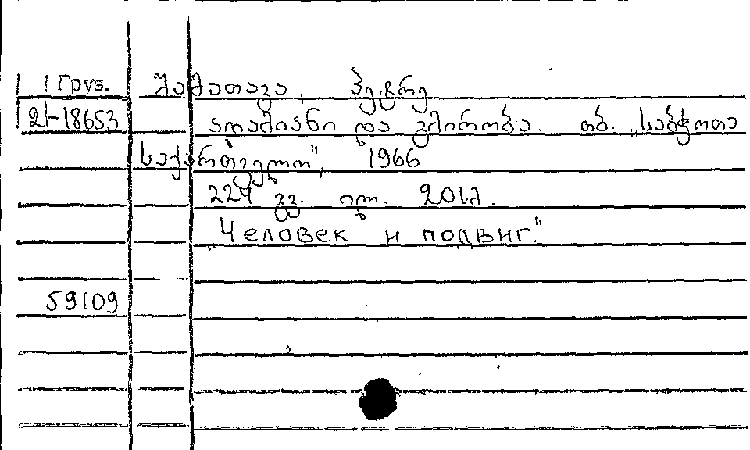 1 Груз. შამათავა, პეტრე
21-18653 ადამიანი და გმირობა. თბ. „საბჭოთა
საქართველო", 1966
224 გვ. ილ. 20სმ.
„Человек и подвиг."
59109